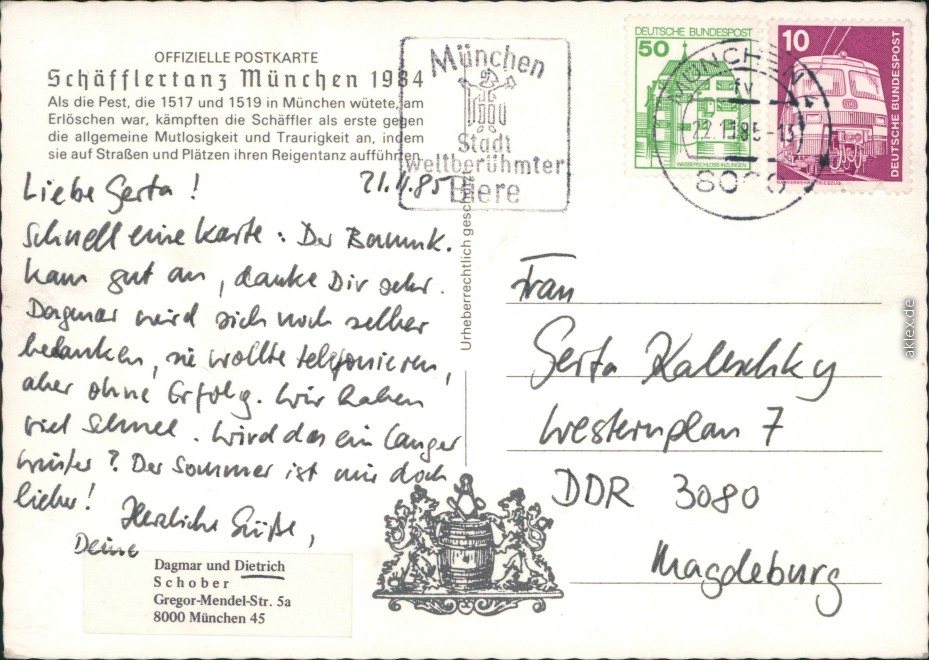 OFFIZIELLE POSTKARTE
Schäfflertanz München 1984
Als die Pest, die 1517 und 1519 in München wütete, am
Erlöschen war, kämpften die Schäffler als erste gegen
die allgemeine Mutlosigkeit und Traurigkeit an, indem
sie auf Straßen und Plätzen ihren Reigentanz aufführten.
München
Stadt
weltberühmter
Biere
DEUTSCHE BUNDESPOST
50
WASSERSCHLOSS INZLINGEN
10
DEUTSCHE BUNDESPOST
NAHVERKEHRS-TRIEBZUG
MÜNCHEN
fv
22.11.85-13
8000
21.11.85
Liebe Gerta!
Schnell eine Karte: Der
kam gut an, danke Dir sehr.
Dagmar wird sich noch selber
bedanken, sie wollte telefonieren,
aber ohne Erfolg. Wir haben
viel Schnee. Wird das ein langer
Winter? Der Sommer ist mir doch
lieber!
Herzliche Grüße,
Deine
Dagmar und Dietrich
Schober
Gregor-Mendel-Str. 5a
8000 München 45
Urheberrechtlich geschützt
Frau
Gerta Kaleschky
Westernplan 7
DDR 3080
Magdeburg
aklex.de